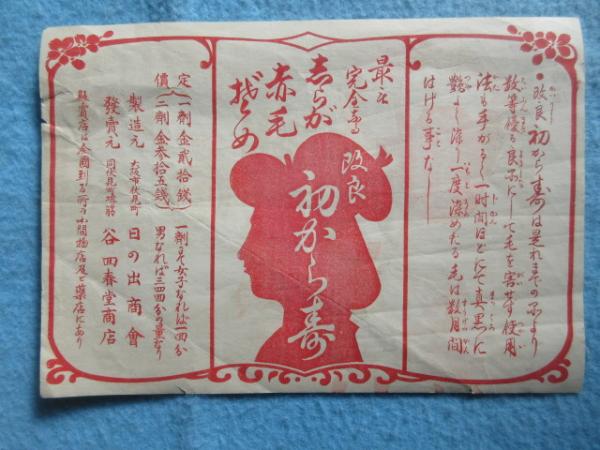 改良 初から寿は是れまでの品より
数等優る良品にして毛を害せず使用
法も手がるく一時間ほどにて真黒に
艶よく染り一度染めたる毛は数月間
はげる事なし
最も
完全なる
志らが
赤毛
ぞめ
改良
初から寿
定價
一劑金貳拾錢
二劑金参拾五錢
一劑にて女子なれば一回分
男なれば三四回分の量あり
製造元 大阪市伏見町 日の出商會
發賣元 同伏見町堺筋 谷四春堂商店
販賣店は全國到る所の小間物店及ビ藥店にあり